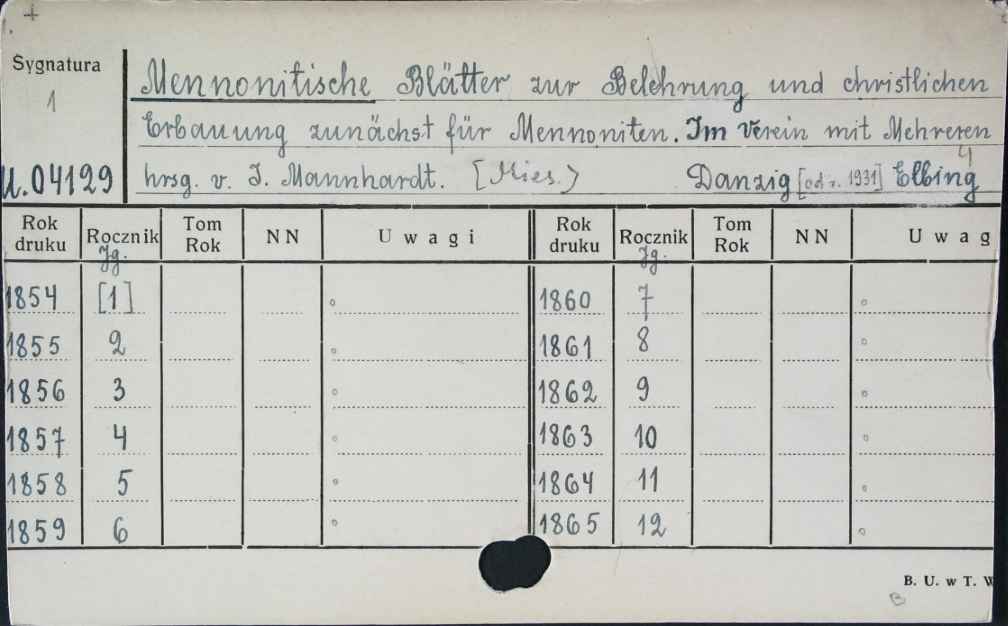 +
Sygnatura
1
U.04129
Mennonitische Blätter zur Belehrung und christlichen
Erbauung zunächst für Mennoniten. Im Verein mit Mehreren
hrsg. v. J. Mannhardt. [Mies.] Danzig [od r. 1931] Elbing
4
Rok druku Rocznik Jg. Tom Rok NN Uwagi Rok druku Rocznik Jg. Tom Rok NN Uwag
1854 [1] 1860 7
1855 2 1861 8
1856 3 1862 9
1857 4 1863 10
1858 5 1864 11
1859 6 1865 12
B. U. w T. W
B